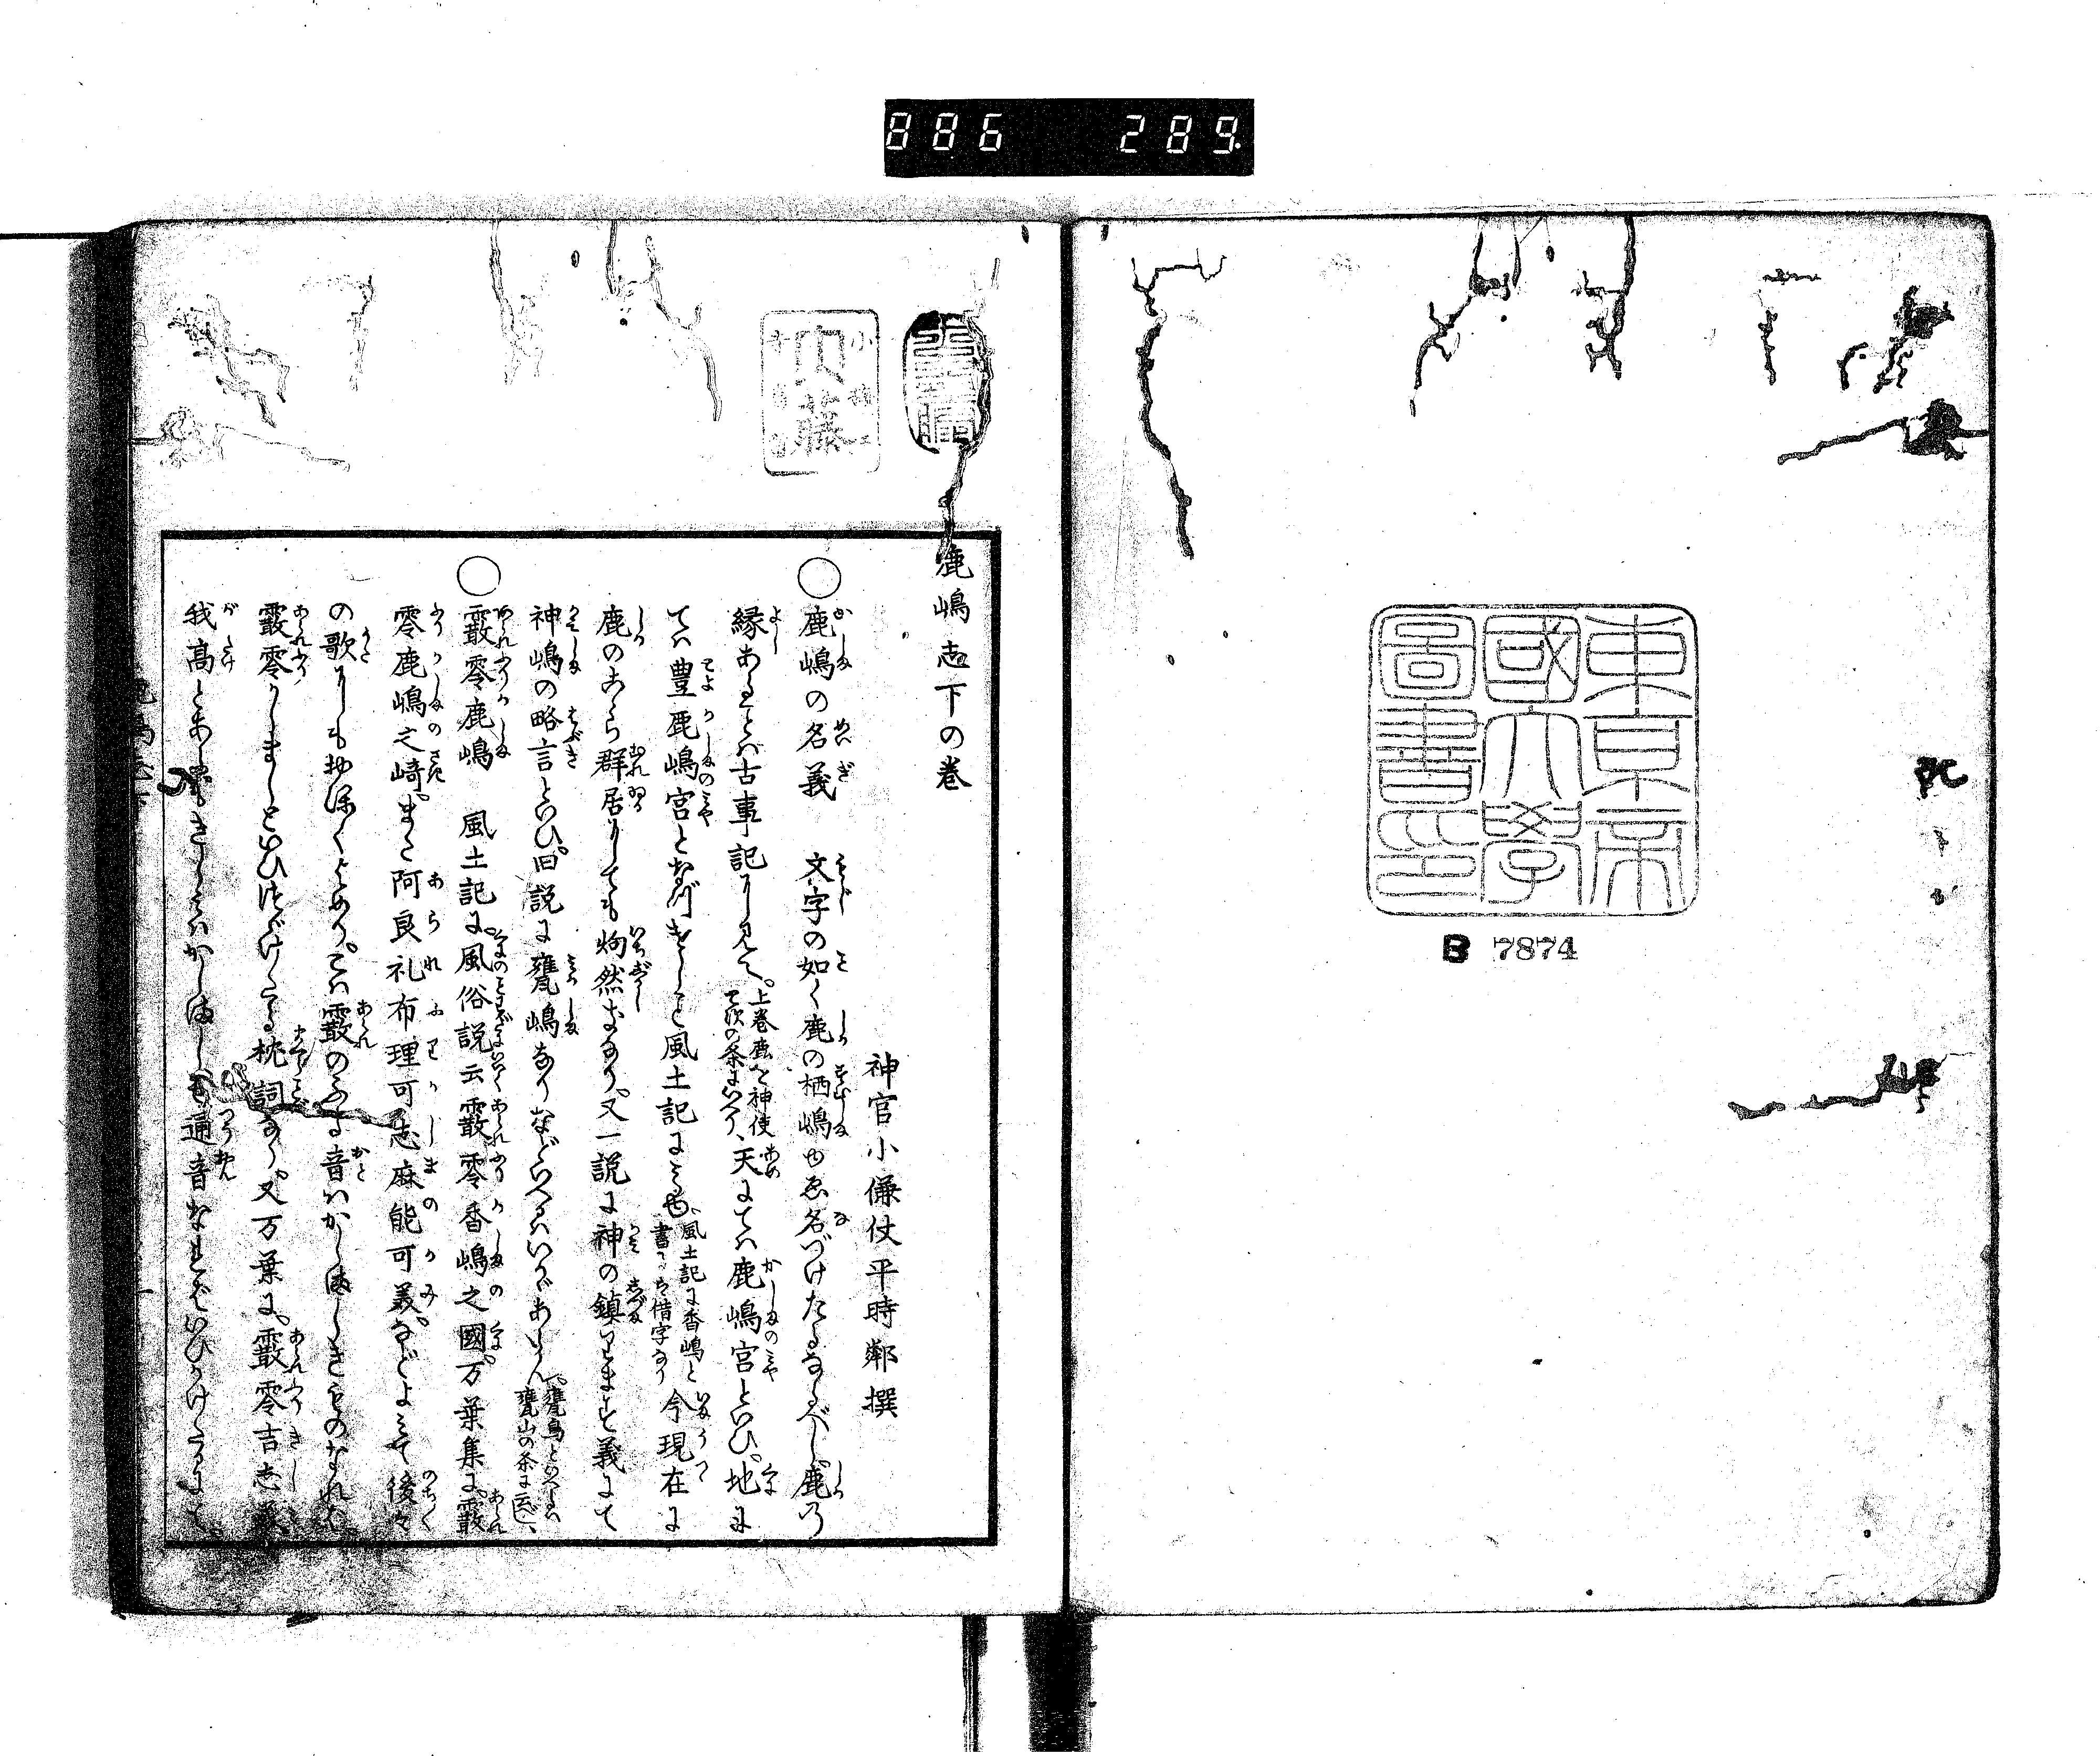 886 289
東京帝
國大學
圖書印
B 7874
鹿嶋志下の巻
神官小傔仗平時鄰撰
○鹿嶋の名義 文字の如く鹿の栖嶋ゆゑ名づけたるなるべし鹿乃
縁あることハ古事記に見て。上巻鹿を神使 て次の条にいへり、天にてハ鹿嶋宮といひ。地に
てハ豊鹿嶋宮となづけしこと風土記にみゆ。風土記に香嶋と書るは借字なり 今現在に
鹿のこゝら群居にても炳然なり。又一説に神の鎮ります義にて
神嶋の略言といひ。旧説に甕嶋なりなどいへるハいかゞあらん 甕山の条に云べし、
○霰零鹿嶋 風土記に。風俗説云霰零香嶋之國。万葉集に。霰
零鹿嶋之﨑。また阿良礼布理可志麻能可美。などよみて後々
の歌にもおほくよめり。こハ霰のふる音ハかしましきものなれば。
霰零かしましといひつゞけたる枕詞なり。又万葉に。霰零吉志美
我高とあるもきしみハかしましと通音なればいひかけたるにて。